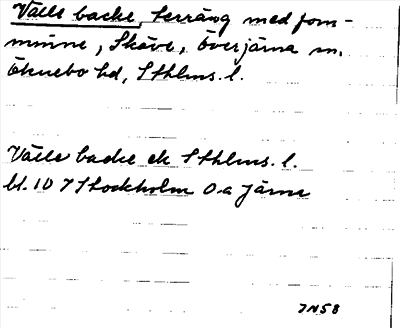 Välle backe, terräng med forn-
minne, Skäve, Överjärna sn.
Öknebo hd, Sthlms. l.
Välle backe ek Sthlms. l.
bl. 10 7 Stockholm O.a Järna
JN58